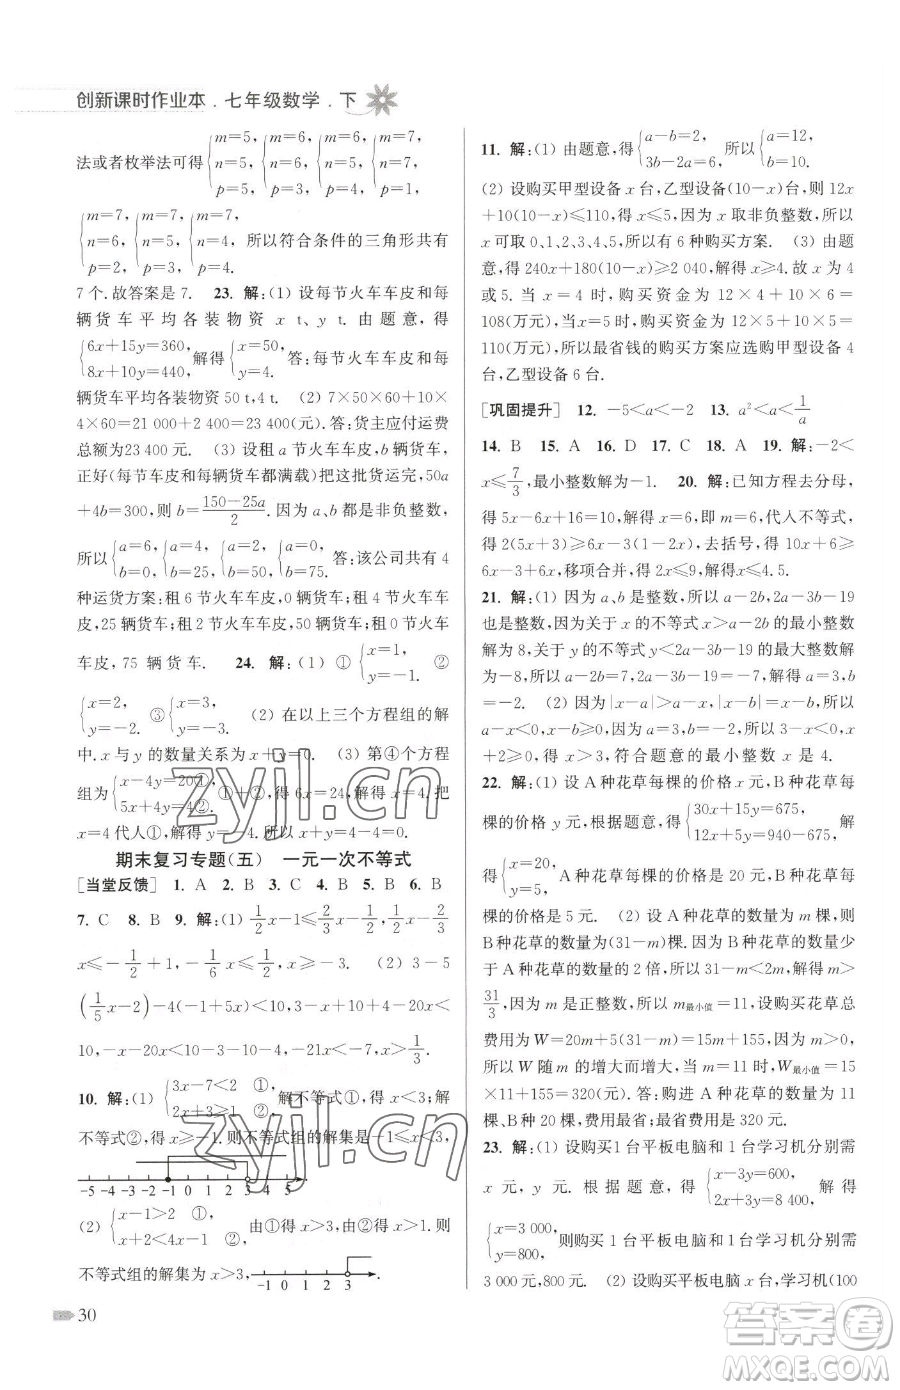 创新课时作业本.七年级数学.下
法或者枚举法可得{m=5, n=5, p=5, {m=6, n=5, p=4, {m=7, n=5, p=3, {m=6, n=6, p=3,
{m=7, n=6, p=2, {m=7, n=5, p=4, {m=7, n=7, p=2. 所以符合条件的三角形共有
7 个.故答案是 7. 23. 解:(1) 设每节火车车皮和每
辆货车平均各装物资 x t、y t. 由题意,得
{6x+15y=360, 8x+10y=440. 解得{x=50, y=4. 答:每节火车车皮和每
辆货车平均各装物资 50 t,4 t. (2) 7×50×60+10×
4×60=21 000+2 400=23 400(元).答:货主应付运费
总额为 23 400 元. (3) 设租 a 节火车车皮和 b 辆货车,
正好(每节车皮和每辆货车都满载)把这批货运完,50a
+4b=300,则 b=(150-25a)/2. 因为 a、b 都是非负整数,
所以{a=6, b=0, {a=4, b=25, {a=2, b=50, {a=0, b=75. 答:该公司共有 4
种运货方案:租 6 节火车车皮,0 辆货车;租 4 节火车车
皮,25 辆货车;租 2 节火车车皮,50 辆货车;租 0 节火车
车皮,75 辆货车. 24. 解:(1) ①{x=1, y=-1. ②
{x=2, y=-2. ③{x=3, y=-3. (2) 在以上三个方程组的解
中,x 与 y 的数量关系为 x+y=0. (3) 第④个方程
组为{x-4y=20①, 5x+4y=4②. ①+②,得 6x=24,解得 x=4. 把
x=4 代人①,解得 y=-4. 所以 x+y=4-4=0.
期末复习专题(五) 一元一次不等式
[当堂反馈] 1. A 2. B 3. C 4. B 5. B 6. B
7. C 8. B 9. 解:(1) 1/2x-1≤2/3x-1/2,1/2x-2/3
x≤-1/2+1,-1/6x≤1/2,x≥-3. (2) 3-5
(1/5x-2)-4(-1+5x)<10,3-x+10+4-20x<
10,-x-20x<10-3-10-4,-21x<-7,x>1/3.
10. 解:(1) {3x-7<2 ①, 2x+3≥1 ②, 解不等式①得 x<3,解
不等式②得 x≥-1. 则不等式组的解集是-1≤x<3,
-5 -4 -3 -2 -1 0 1 2 3 4 5
(2) {x-1>2 ①, x>1 ②, 由①得 x>3,由②得 x>1. 所以
不等式组的解集为 x>3, -1 0 1 2 3
11. 解:(1) 由题意,得{a-b=2, 3b-2a=6, 所以{a=12, b=10.
(2) 设购买甲型设备 x 台,乙型设备(10-x)台,则 12x
+10(10-x)≤110,得 x≤5,因为 x 取非负整数,所以
x 可取 0、1、2、3、4、5,所以有 6 种购买方案. (3) 由题
意,得 240x+180(10-x)≥2 040,解得 x≥4. 故 x 为 4
或 5. 当 x=4 时,购买资金为 12×4+10×6=
108(万元),当 x=5 时,购买资金为 12×5+10×5=
110(万元),所以最省钱的购买方案应选购甲型设备 4
台,乙型设备 6 台.
[巩固提升] 12. -5<a<-2 13. a²<a<1/a
14. B 15. A 16. D 17. C 18. A 19. 解:-2<
x≤7/3,最小整数解为-1. 20. 解:已知方程去分母,
得 5x-6x+16=10,解得 x=6,即 m=6,代人不等式,
得 2(5x+3)≥6x-3(1-2x),去括号,得 10x+6≥
6x-3+6x,移项合并,得 2x≤9,解得 x≤4.5.
21. 解:(1) 因为 a、b 是整数,所以 a-2b,2a-3b-19
也是整数,因为关于 x 的不等式 x>a-2b 的最小整数
解为 8,关于 y 的不等式 y<2a-3b-19 的最大整数解
为-8,所以 a-2b=7,2a-3b-19=-7,解得 a=3,b
=-2. (2) 因为|x-a|>a-x,|x-b|=x-b,所以
a-x<0,x-b≥0,因为 a=3,b=-2,所以 3-x<0,x
+2≥0,所以 x>3,符合题意的最小整数 x 是 4.
22. 解:(1) 设 A 种花草每棵的价格 x 元,B 种花草每
棵的价格 y 元,根据题意,得{30x+15y=675, 12x+5y=940-675, 解
得{x=20, y=5. A 种花草每棵的价格是 20 元,B 种花草每棵
的价格是 5 元. (2) 设 A 种花草的数量为 m 棵,则
B 种花草的数量为(31-m)棵. 因为 B 种花草的数量少
于 A 种花草的数量的 2 倍,所以 31-m<2m,解得 m>
31/3,因为 m 是正整数,所以 m最小值=11,设购买花草总
费用为 W=20m+5(31-m)=15m+155,因为 m>0,
所以 W 随 m 的增大而增大,当 m=11 时,W最小值=15
×11+155=320(元). 答:购进 A 种花草的数量为 11
棵、B 种 20 棵,费用最省;最省费用是 320 元.
23. 解:(1) 设购买 1 台平板电脑和 1 台学习机分别需
x 元,y 元. 根据题意,得{x-3y=600, 2x+3y=8 400, 解得
{x=3 000, y=800, 则购买 1 台平板电脑和 1 台学习机分别需
3 000 元,800 元. (2) 设购买平板电脑 x 台,学习机(100
30
zyjl.cn
zyjl.cn
答案圈
MXQE.COM